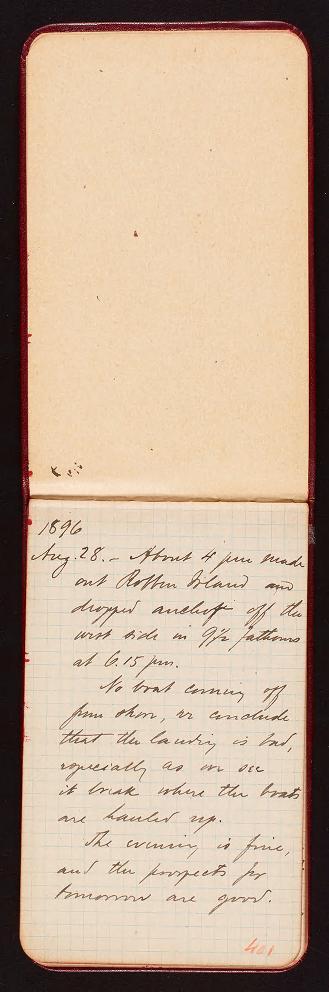 1896
Aug. 28. - About 4 pm made
out Robben Island and
dropped anchor off the
west side in 9½ fathoms
at 6.15 pm.
No boat coming off
from shore, we conclude
that the landing is bad,
especially as we see
it break where the boats
are hauled up.
The evening is fine,
and the prospects for
tomorrow are good.
401